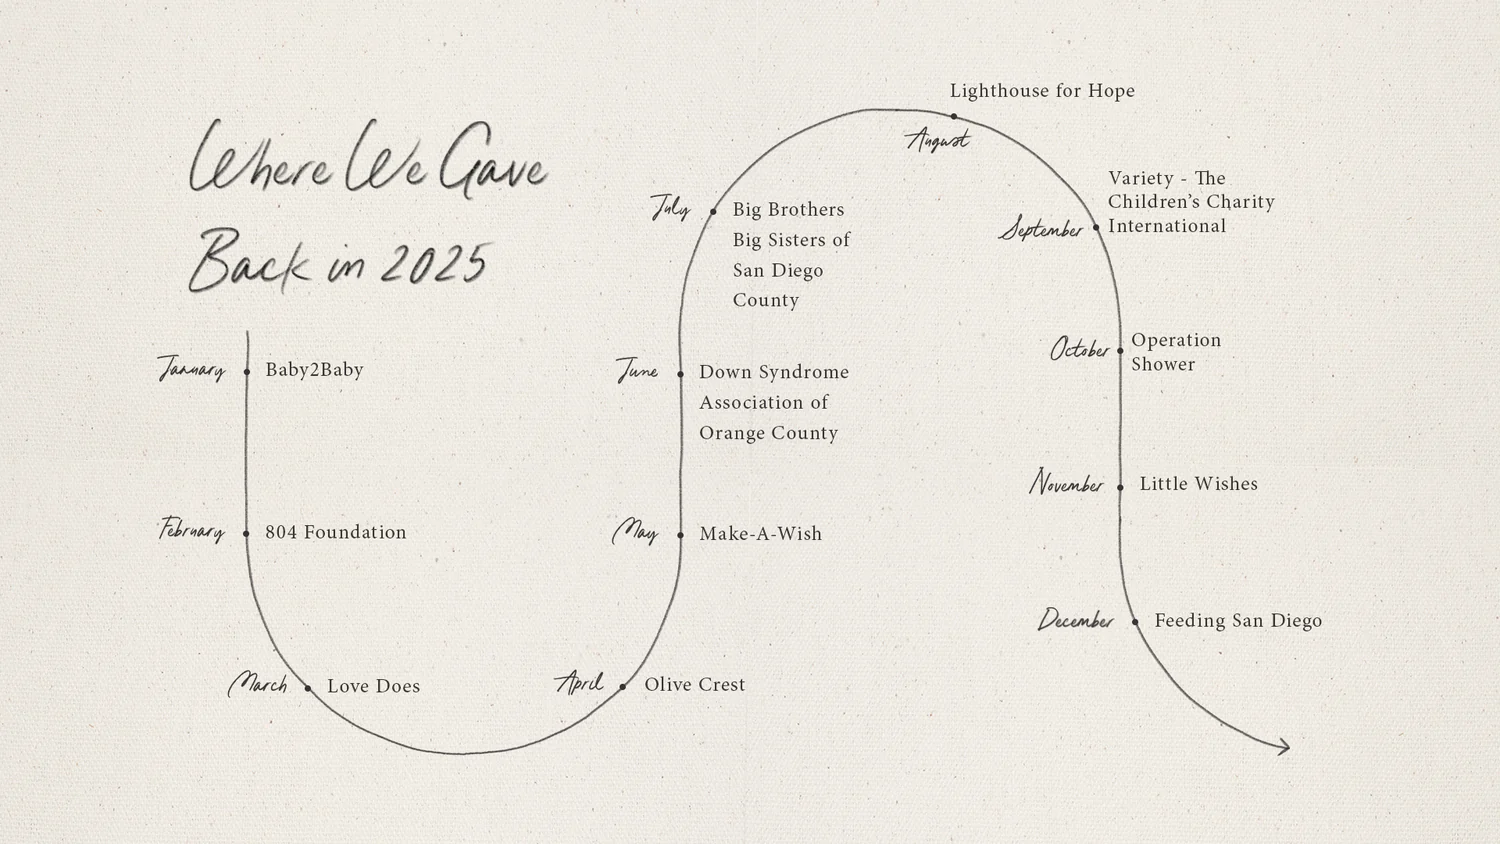 Where We Gave
Back in 2025
January
Baby2Baby
February
804 Foundation
March
Love Does
April
Olive Crest
May
Make-A-Wish
June
Down Syndrome
Association of
Orange County
July
Big Brothers
Big Sisters of
San Diego
County
Lighthouse for Hope
August
September
Variety - The
Children's Charity
International
October
Operation
Shower
November
Little Wishes
December
Feeding San Diego